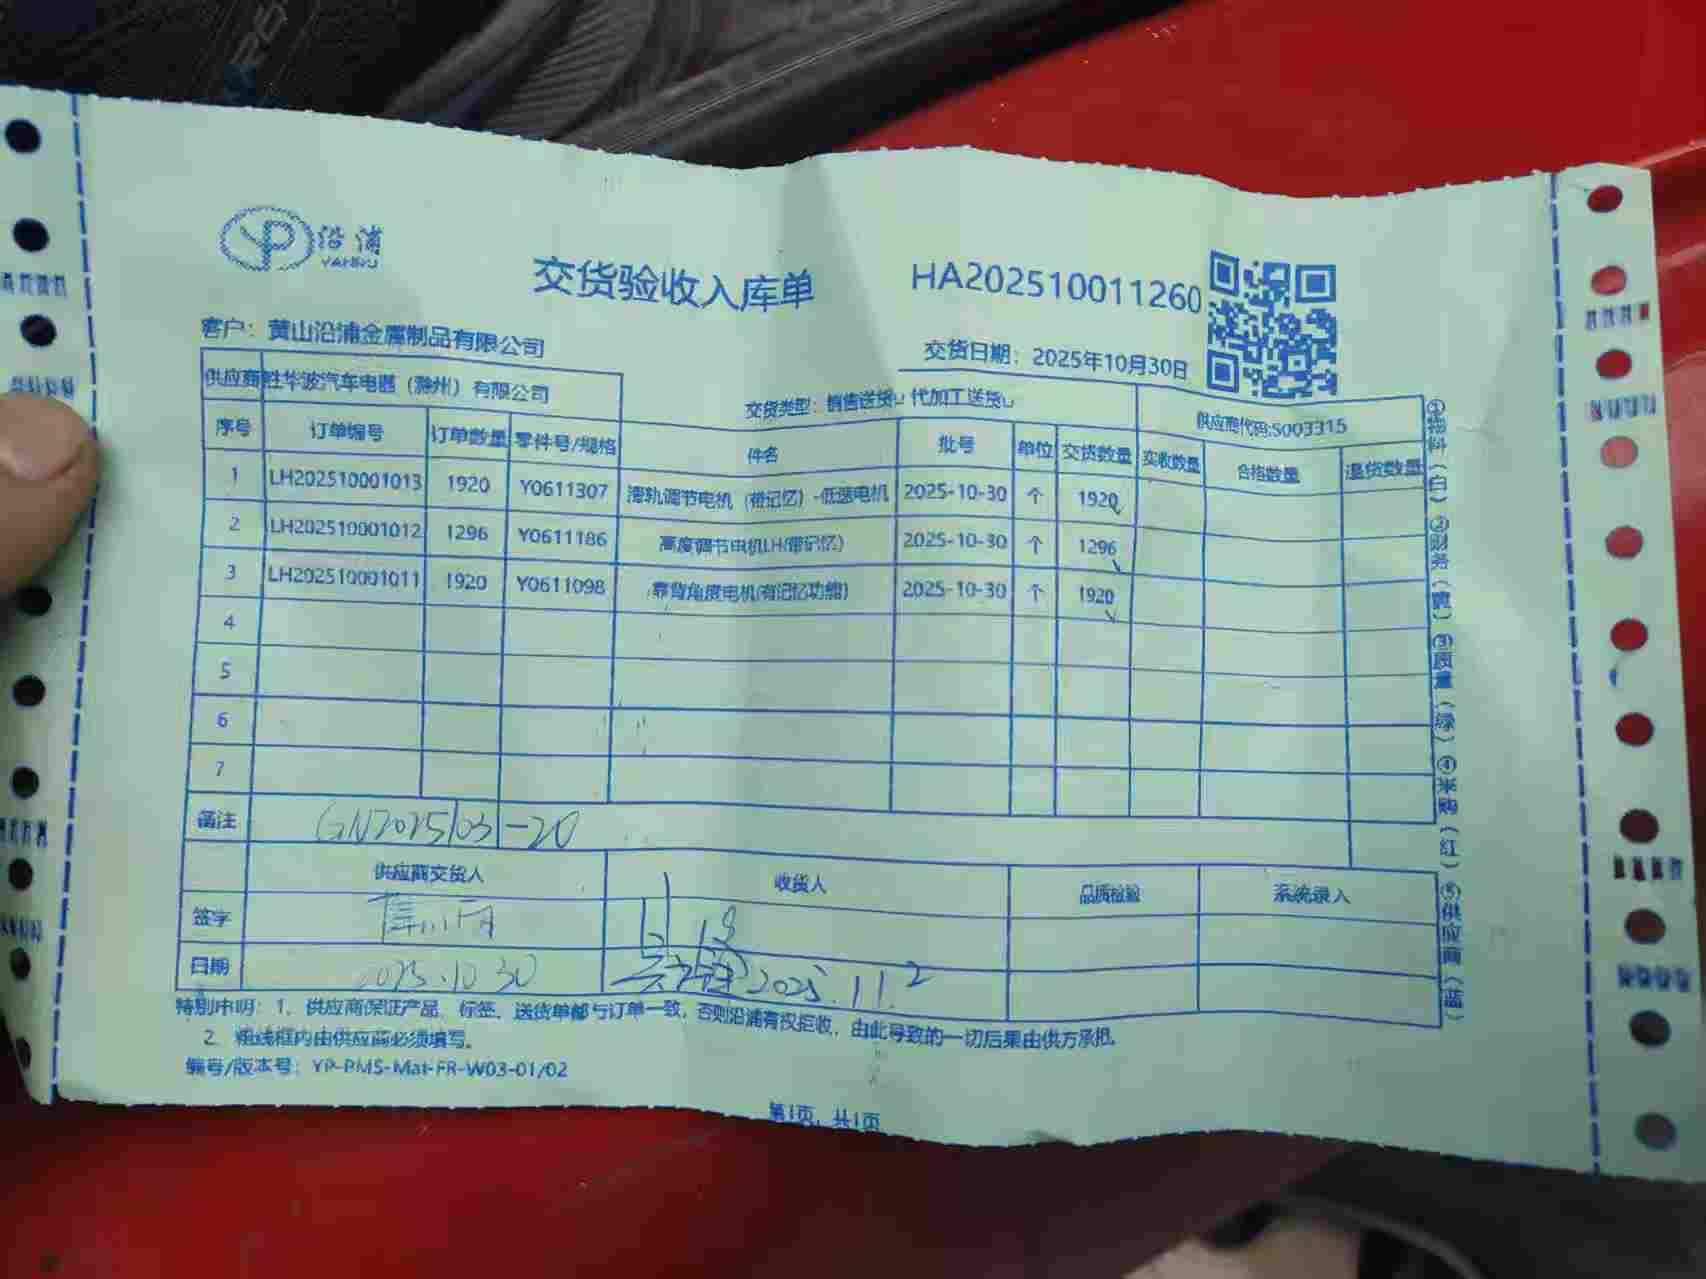 沿浦
YANPU
交货验收入库单
HA202510011260
客户：黄山沿浦金属制品有限公司
交货日期：2025年10月30日
供应商 胜华波汽车电器（滁州）有限公司 交货类型：销售送货 代加工送货 供应商代码:S003315
序号 订单编号 订单数量 零件号/规格 件名 批号 单位 交货数量 实收数量 合格数量 退货数量
1 LH202510001013 1920 Y0611307 滑轨调节电机（带记忆）-低速电机 2025-10-30 个 1920
2 LH202510001012 1296 Y0611186 高度调节电机LH(带记忆) 2025-10-30 个 1296
3 LH202510001011 1920 Y0611098 靠背角度电机(有记忆功能) 2025-10-30 个 1920
4
5
6
7
备注 GN20251031-20
供应商交货人 收货人 品质检验 系统录入
签字
日期 2025.10.30 2025.11.2
特别申明：1、供应商保证产品、标签、送货单都与订单一致，否则沿浦有权拒收，由此导致的一切后果由供方承担。
2、粗线框内由供应商必须填写。
编号/版本号：YP-PMS-Mat-FR-W03-01/02
第1页，共1页
②财务（黄）③质量（绿）④采购（红）⑤供应商（蓝）